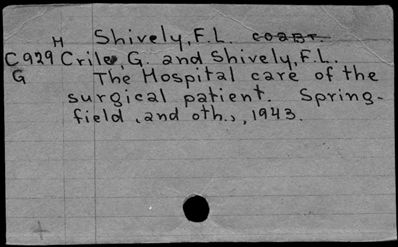 H Shively, F.L. coaut.
C929 Crile, G. and Shively, F.L.
G The Hospital care of the
surgical patient. Spring-
field, and oth., 1943.